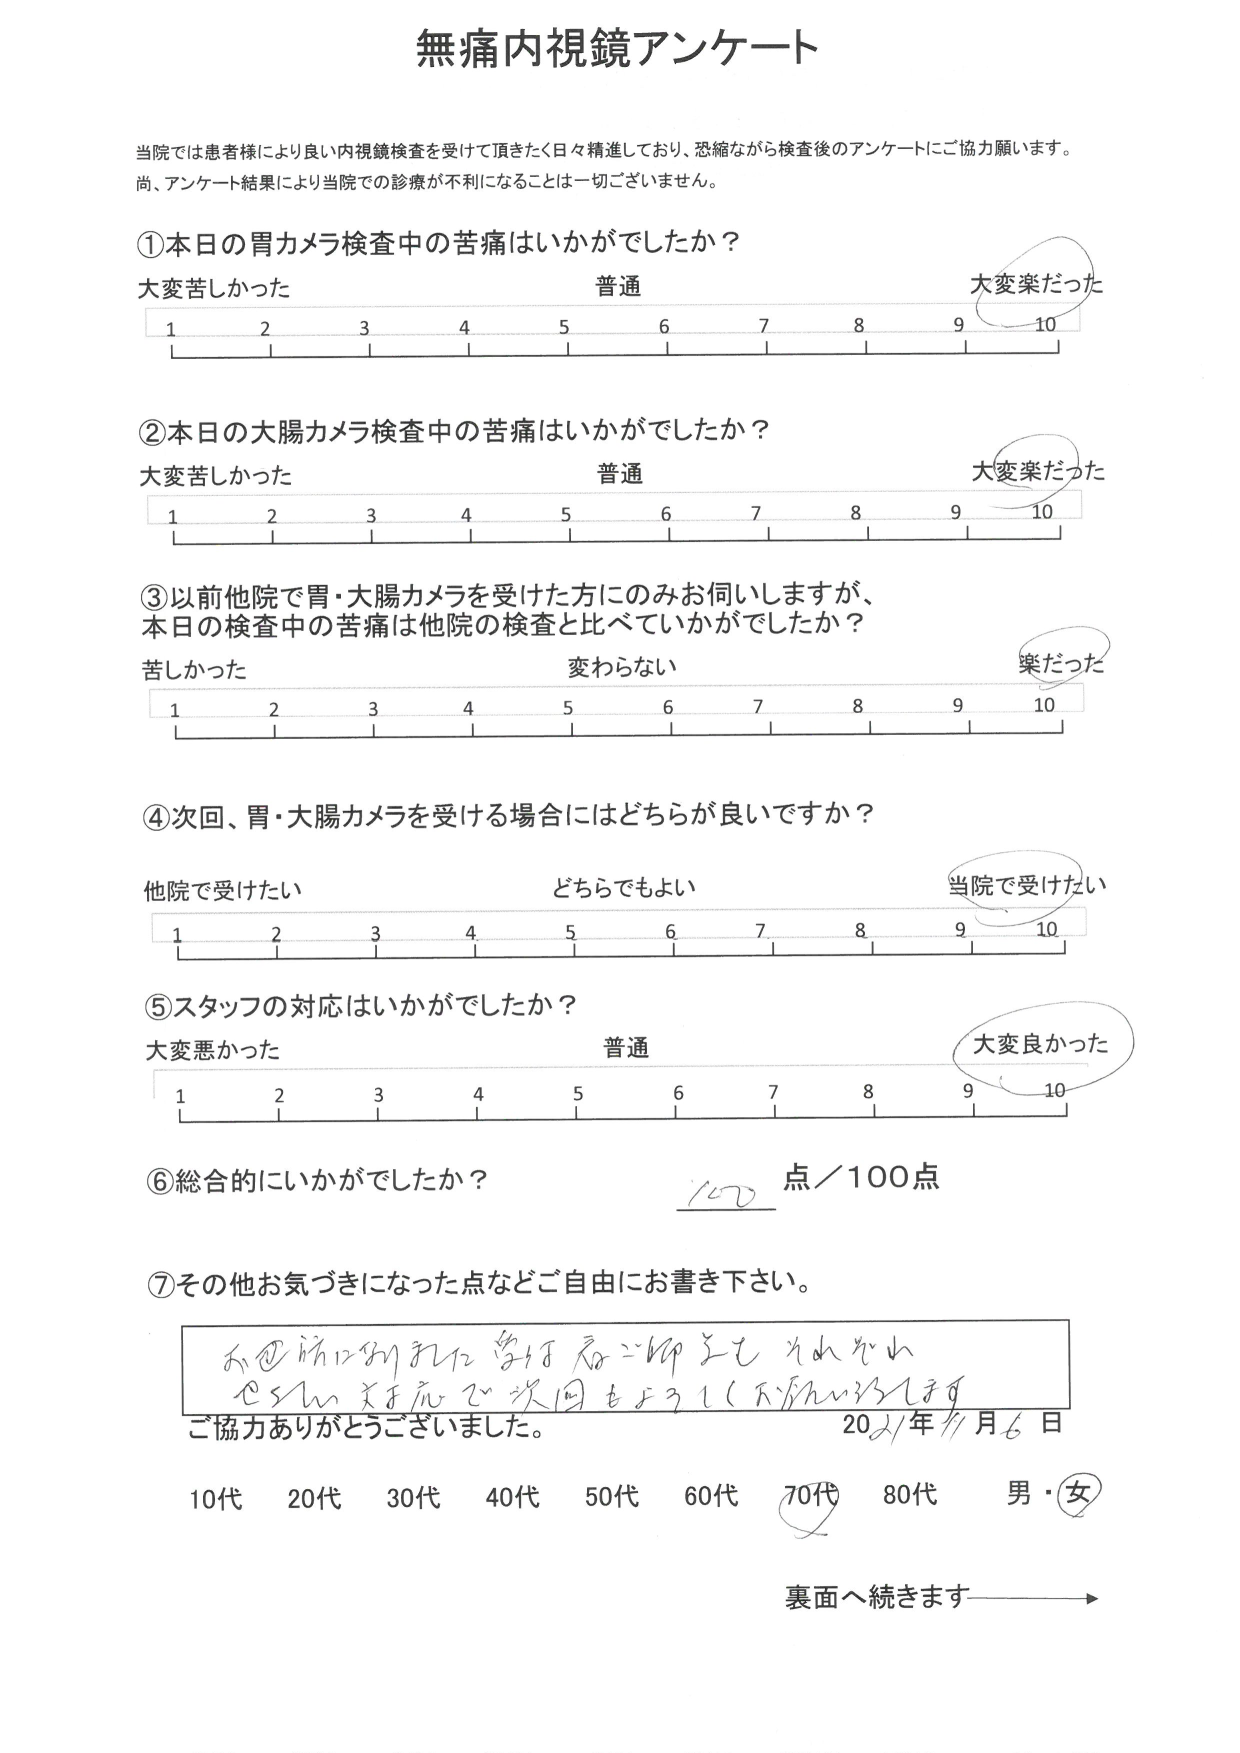 無痛内視鏡アンケート
当院では患者様により良い内視鏡検査を受けて頂きたく日々精進しており、恐縮ながら検査後のアンケートにご協力願います。
尚、アンケート結果により当院での診療が不利になることは一切ございません。
①本日の胃カメラ検査中の苦痛はいかがでしたか？
大変苦しかった 普通 大変楽だった
1 2 3 4 5 6 7 8 9 10
②本日の大腸カメラ検査中の苦痛はいかがでしたか？
大変苦しかった 普通 大変楽だった
1 2 3 4 5 6 7 8 9 10
③以前他院で胃・大腸カメラを受けた方にのみお伺いしますが、
本日の検査中の苦痛は他院の検査と比べていかがでしたか？
苦しかった 変わらない 楽だった
1 2 3 4 5 6 7 8 9 10
④次回、胃・大腸カメラを受ける場合にはどちらが良いですか？
他院で受けたい どちらでもよい 当院で受けたい
1 2 3 4 5 6 7 8 9 10
⑤スタッフの対応はいかがでしたか？
大変悪かった 普通 大変良かった
1 2 3 4 5 6 7 8 9 10
⑥総合的にいかがでしたか？ 100 点／100点
⑦その他お気づきになった点などご自由にお書き下さい。
お世話になりました それぞれ
対応で次回もよろしくお願い致します
ご協力ありがとうございました。 2021年11月6日
10代 20代 30代 40代 50代 60代 70代 80代 男・女
裏面へ続きます